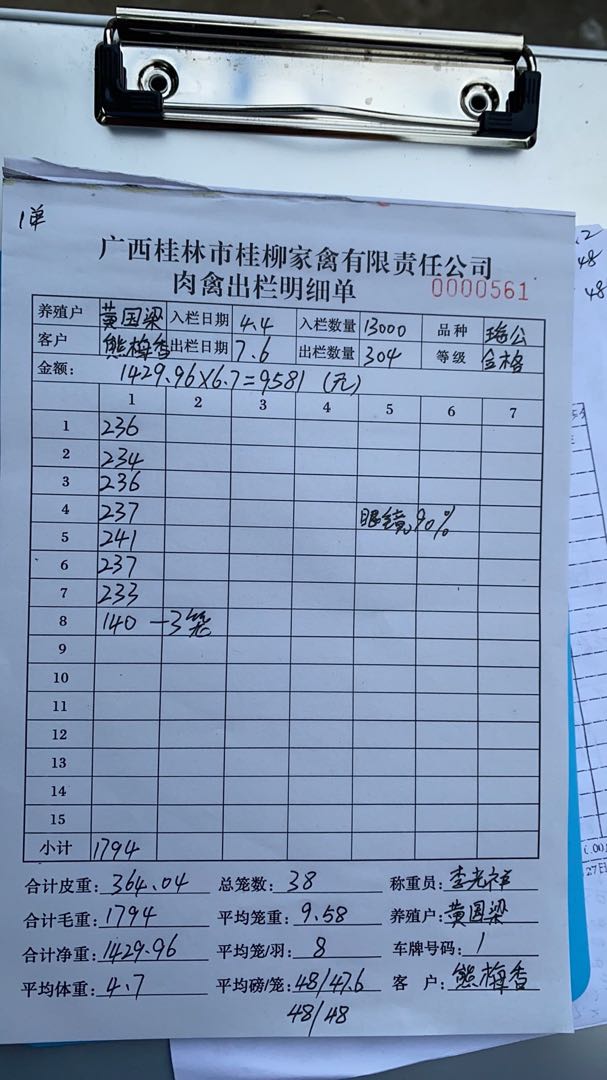 1单
广西桂林市桂柳家禽有限责任公司
肉禽出栏明细单 0000561
养殖户 黄国梁 入栏日期 4.4 入栏数量 13000 品种 瑶公
客户 熊梅香 出栏日期 7.6 出栏数量 304 等级 合格
金额: 1429.96×6.7=9581 (元)
1 2 3 4 5 6 7
1 236
2 234
3 236
4 237 眼镜90%
5 241
6 237
7 233
8 140 —3笼
9
10
11
12
13
14
15
小计 1794
合计皮重: 364.04 总笼数: 38 称重员: 李光祥
合计毛重: 1794 平均笼重: 9.58 养殖户: 黄国梁
合计净重: 1429.96 平均笼/羽: 8 车牌号码: 1
平均体重: 4.7 平均磅/笼: 48/47.6 客 户: 熊梅香
48/48
48
48